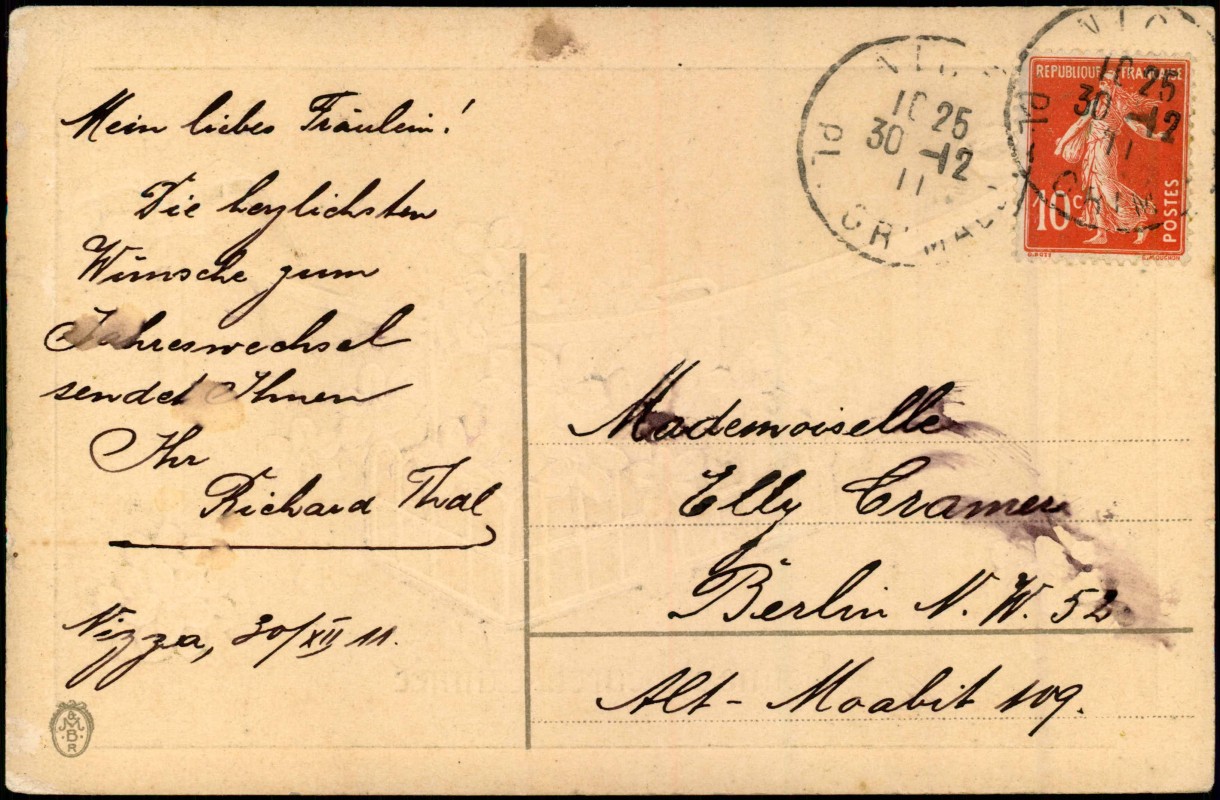 Mein liebes Fräulein!
Die herzlichsten
Wünsche zum
Jahreswechsel
sendet Ihnen
Ihr
Richard Thal
Nizza, 30/XII 11.
NICE
10 25
30 -12
11
PL. GRIMALDI
NIC
10 25
30 -12
11
PL. GRIM
REPUBLIQUE FRANÇAISE
10 c
POSTES
O. ROTY
E. MOUCHON
Mademoiselle
Elly Cramer
Berlin N. W. 52
Alt-Moabit 109.